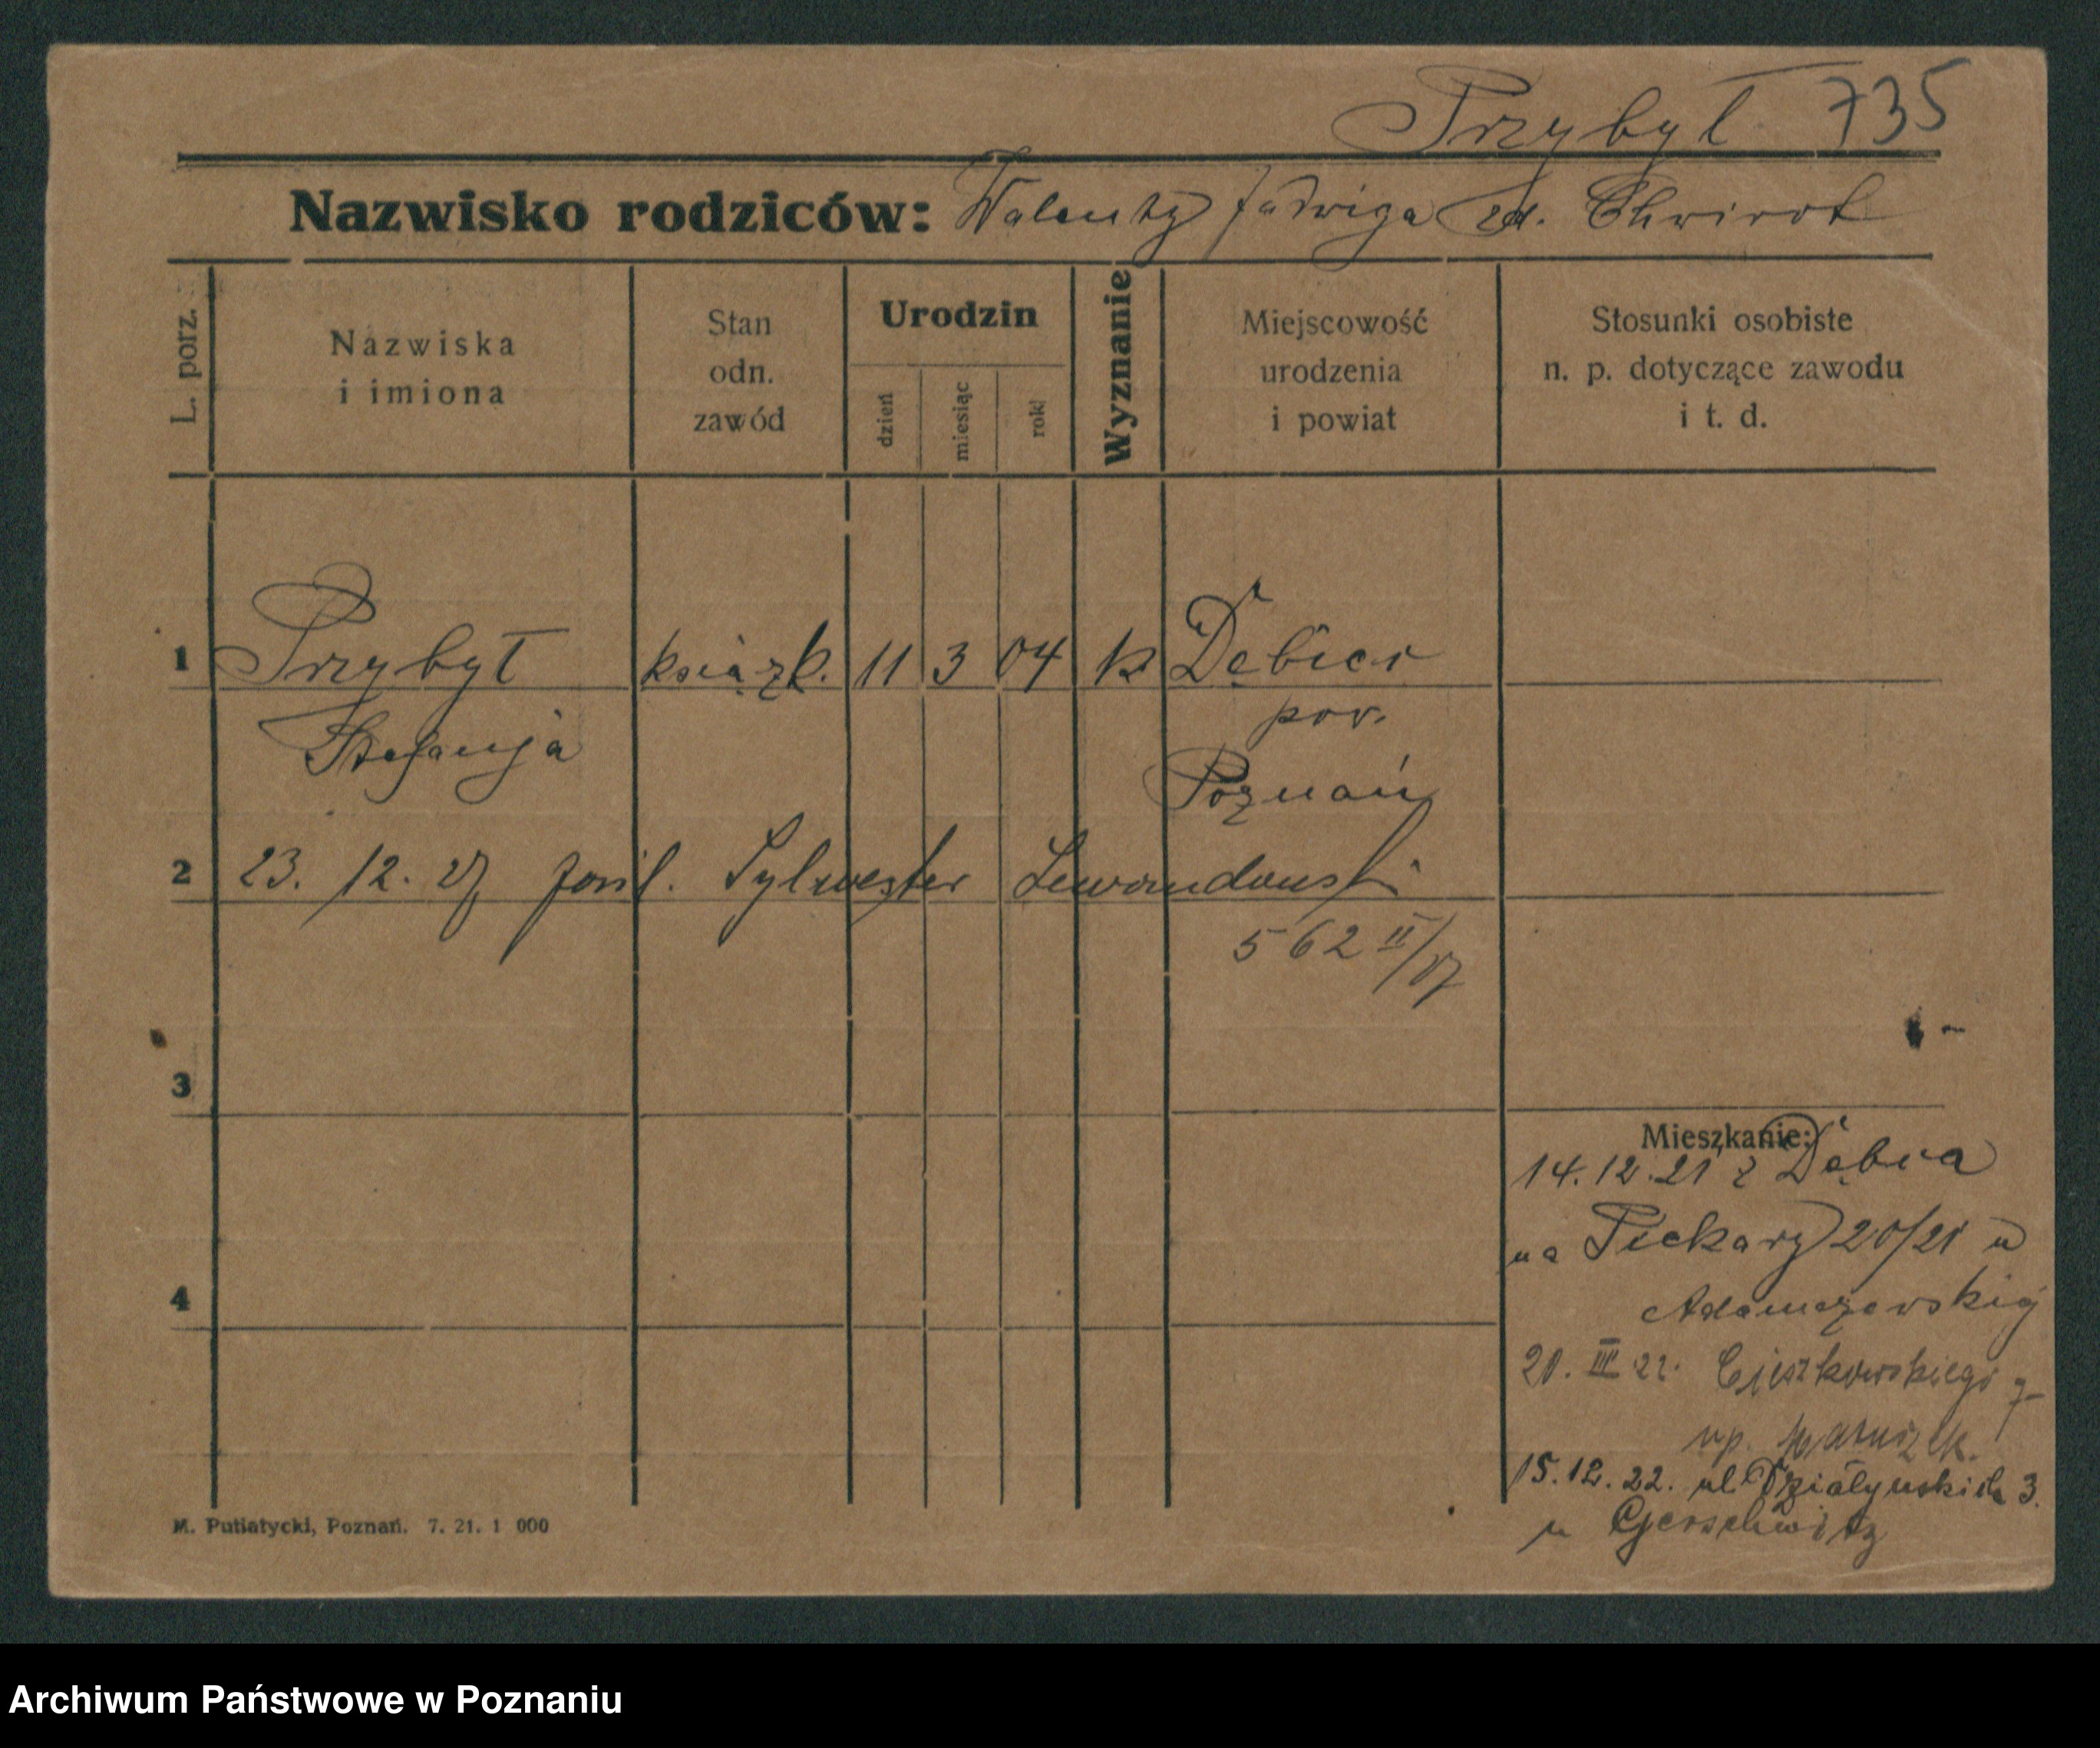 Przybył 735
Nazwisko rodziców: Walenty Jadwiga zd. Chwirot
L. porz.
Nazwiska
i imiona
Stan
odn.
zawód
Urodzin
dzień
miesiąc
rok
Wyznanie
Miejscowość
urodzenia
i powiat
Stosunki osobiste
n. p. dotyczące zawodu
i t. d.
1 Przybył książk. 11 3 04 k Dębiec
Stefanja
pow.
Poznań
2 23. 12. 27 Sylwester Lewandowski
562 II/27
3
Mieszkanie:
14. 12. 21 z Dębca
na Piekary 20/21 u
4
Adamczewskiej
20. III 22. Cieszkowskiego 7
np.
15. 12. 22. ul. Działyńskich 3.
u Gerschwitz
M. Putiatycki, Poznań. 7. 21. 1 000
Archiwum Państwowe w Poznaniu